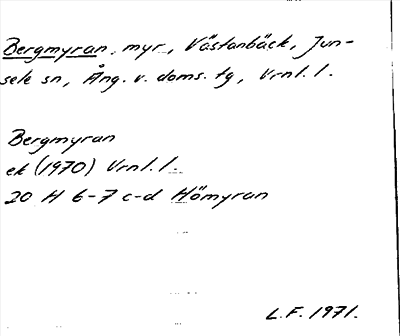 Bergmyran, myr, Västanbäck, Jun-
sele sn, Ång. v. doms. tg, Vrnl. l.
Bergmyran
ek (1970) Vrnl. l.
20 H 6-7 c-d Hömyran
L.F. 1971.